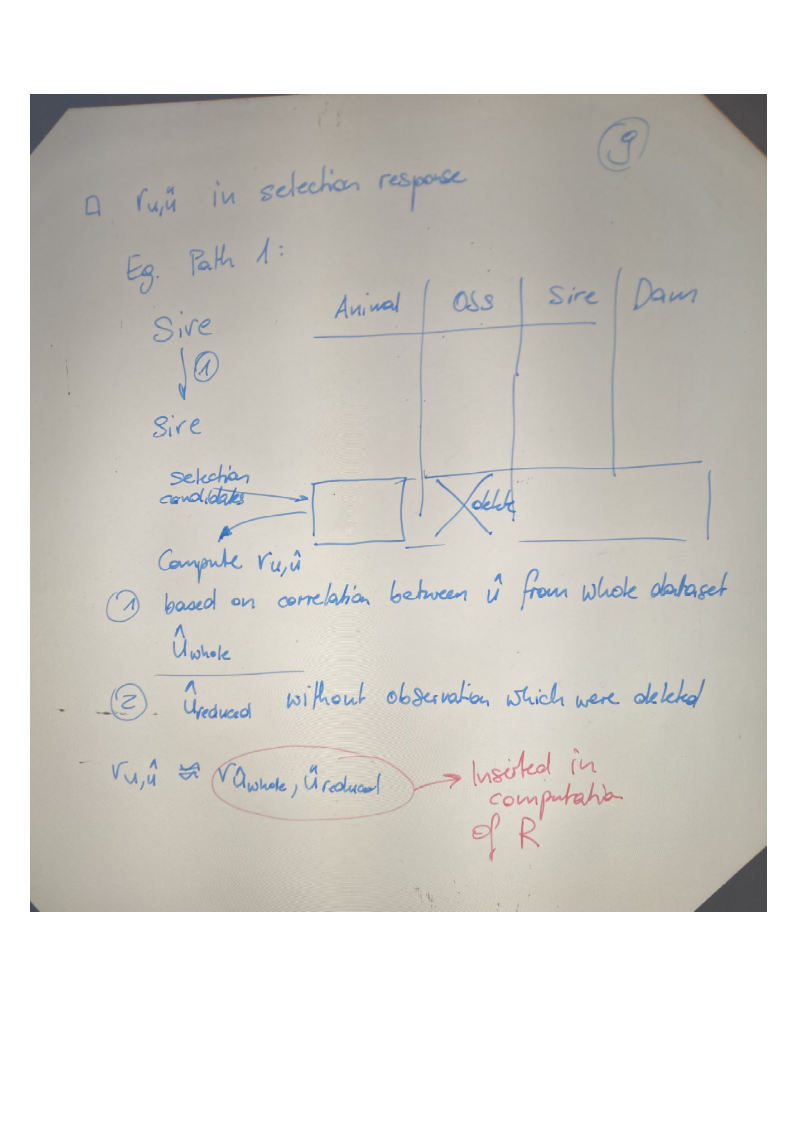 9
r u,û in selection response
Eg. Path 1:
Animal Obs Sire Dam
Sire
1
Sire
selection
candidates
delete
Compute r u,û
1 based on correlation between û from whole dataset
û whole
2. û reduced without observation which were deleted
r u,û ≈ r û whole, û reduced
Inserted in
computation
of R